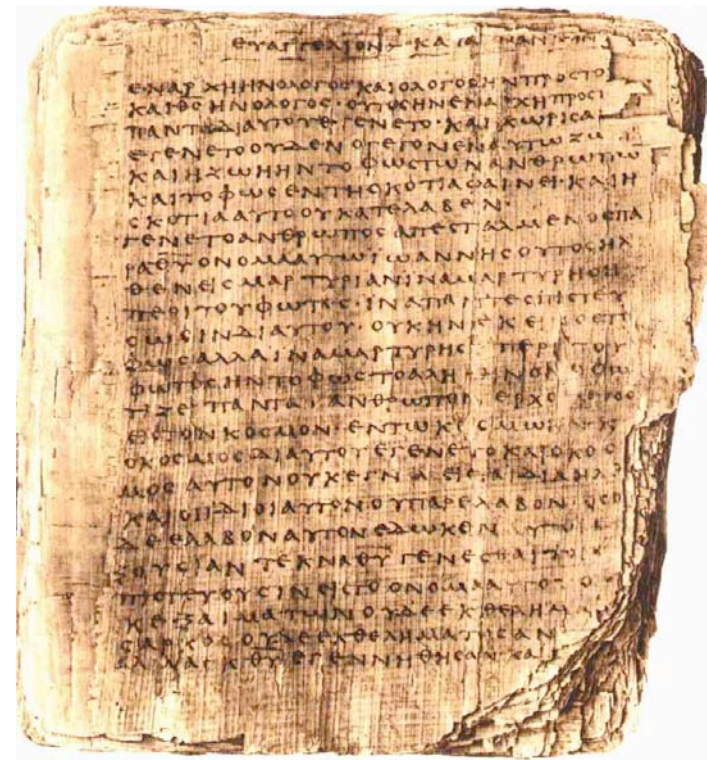 ΕΥΑΓΓΕΛΙΟΝ ΚΑΤΑ
ΕΝΑΡΧΗΗΝΟΛΟΓΟϹΚΑΙΟΛΟΓΟϹΗΝΠΡΟϹΤΟ
ΚΑΙΘϹΗΝΟΛΟΓΟϹ·ΟΥΤΟϹΗΝΕΝΑΡΧΗΠΡΟϹ
ΠΑΝΤΑΔΙΑΥΤΟΥΕΓΕΝΕΤΟ·ΚΑΙΧΩΡΙϹΑ
ΕΓΕΝΕΤΟΟΥΔΕΝΟΓΕΓΟΝΕΝΑΥΤΩΖΩ
ΚΑΙΗΖΩΗΗΝΤΟΦΩϹΤΩΝΑΝΘΡΩΠΩ
ΚΑΙΤΟΦΩϹΕΝΤΗϹΚΟΤΙΑΦΑΙΝΕΙ·ΚΑΙΗ
ϹΚΟΤΙΑΑΥΤΟΟΥΚΑΤΕΛΑΒΕΝ·
ΕΓΕΝΕΤΟΑΝΘΡΩΠΟϹΑΠΕϹΤΑΛΜΕΝΟϹΠΑ
ΡΑΘΥΟΝΟΜΑΑΥΤΩΙΩΑΝΝΗϹΟΥΤΟϹΗΛ
ΘΕΝΕΙϹΜΑΡΤΥΡΙΑΝΙΝΑΜΑΡΤΥΡΗϹΗ
ΠΕΡΙΤΟΥΦΩΤΟϹ·ΙΝΑΠΑΝΤΕϹΠΙϹΤΕΥ
ϹΩϹΙΝΔΙΑΥΤΟΥ·ΟΥΚΗΝΕΚΕΙΝΟϹΤΟ
ΦΩϹΑΛΛΑΙΝΑΜΑΡΤΥΡΗϹΗΠΕΡΙΤΟΥ
ΦΩΤΟϹΗΝΤΟΦΩϹΤΟΑΛΗΘΙΝΟΝΟΦΩ
ΤΙΖΕΙΠΑΝΤΑΑΝΘΡΩΠΟΝΕΡΧΟΜΕΝΟ
ΕΙϹΤΟΝΚΟϹΜΟΝ·ΕΝΤΩΚΟϹΜΩΗΝΚ
ΟΚΟϹΜΟϹΔΙΑΥΤΟΥΕΓΕΝΕΤΟΚΑΙΟΚΟϹ
ΜΟϹΑΥΤΟΝΟΥΚΕΓΝΩΕΙϹΤΑΙΔΙΑΗΛ
ΚΑΙΟΙΙΔΙΟΙΑΥΤΟΝΟΥΠΑΡΕΛΑΒΟΝ·ΟϹΟ
ΔΕΕΛΑΒΟΝΑΥΤΟΝΕΔΩΚΕΝΑΥΤΟΙ
ΞΟΥϹΙΑΝΤΕΚΝΑΘΥΓΕΝΕϹΘΑΙΤΟΙϹ
ΠΙϹΤΕΥΟΥϹΙΝΕΙϹΤΟΟΝΟΜΑΑΥΤΟΥΟ
ΚΕΞΑΙΜΑΤΩΝΟΥΔΕΕΚΘΕΛΗΜΑ
ϹΑΡΚΟϹΟΥΔΕΕΚΘΕΛΗΜΑΤΟϹΑΝ
ΑΛΛΑΕΚΘΥΕΓΕΝΝΗΘΗϹΑΝΚΑΙ